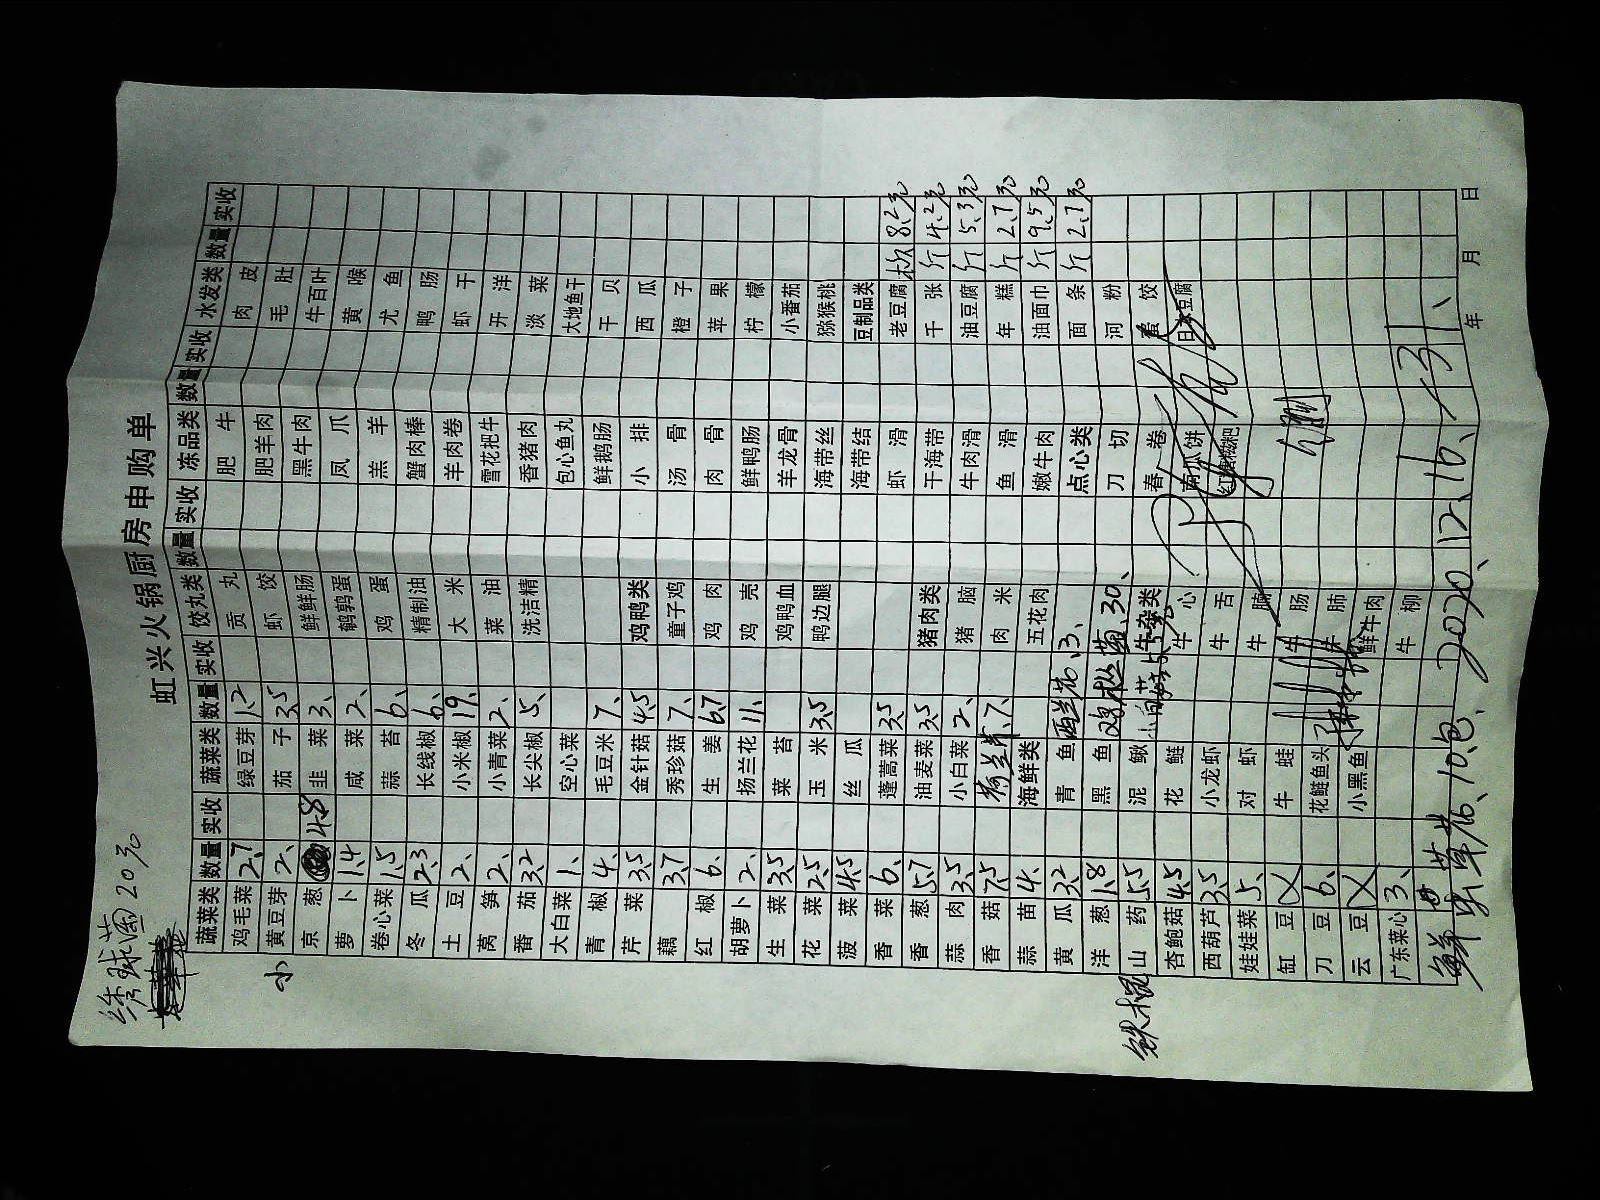 绣球菌20元
虹兴火锅厨房申购单
蔬菜类 数量 实收 蔬菜类 数量 实收 饺丸类 数量 实收 冻品类 数量 实收 水发类 数量 实收
鸡毛菜 2.7 绿豆芽 1.2 贡丸 肥牛 肉皮
小 黄豆芽 2、 茄子 3.5 虾饺 肥羊肉 毛肚
京葱 4.8 韭菜 3、 鲜鲜肠 黑牛肉 牛百叶
萝卜 1.4 咸菜 2、 鹌鹑蛋 凤爪 黄喉
卷心菜 1.5 蒜苔 6、 鸡蛋 羔羊 尤鱼
冬瓜 2.3 长线椒 6、 精制油 蟹肉棒 鸭肠
土豆 2、 小米椒 19、 大米 羊肉卷 虾干
莴笋 2、 小青菜 2、 菜油 雪花把牛 开洋
番茄 3.2 长尖椒 5、 洗洁精 香猪肉 淡菜
大白菜 1、 空心菜 包心鱼丸 大地鱼干
青椒 4、 毛豆米 7、 鲜鹅肠 干贝
芹菜 3.5 金针菇 4.5 鸡鸭类 小排 西瓜
藕 3.7 秀珍菇 7、 童子鸡 汤骨 橙子
红椒 6、 生姜 6.7 鸡肉 肉骨 苹果
胡萝卜 2、 扬兰花 11、 鸡壳 鲜鸭肠 柠檬
生菜 3.5 菜苔 鸡鸭血 羊龙骨 小番茄
花菜 2.5 玉米 3.5 鸭边腿 海带丝 猕猴桃
菠菜 4.5 丝瓜 海带结 豆制品类
香菜 6、 蓬蒿菜 3.5 虾滑 老豆腐 8.5元
香葱 5.7 油麦菜 3.5 猪肉类 干海带 千张 斤 4.2元
蒜肉 3.5 小白菜 2、 猪脑 牛肉滑 油豆腐 斤 5.3元
香菇 7.5 荷兰芹 7、 肉米 鱼滑 年糕 斤 2.7元
蒜苗 4、 海鲜类 五花肉 嫩牛肉 油面巾 斤 9.5元
黄瓜 3.2 青鱼 西兰花 3、 点心类 面条 斤 2.7元
洋葱 1.8 黑鱼 鸡枞菌 30、 刀切 河粉
铁棍 山药 5.5 泥鳅 牛杂类 春卷 蛋饺
杏鲍菇 4.5 花鲢 牛心 南瓜饼 日本豆腐
西葫芦 3.5 小龙虾 牛舌 红糖糍粑
娃娃菜 5、 对虾 牛腩
缸豆 X 牛蛙 牛肠
刀豆 6、 花鲢鱼头 牛肺
云豆 X 小黑鱼 鲜牛肉
广东菜心 3、 牛柳
10包、2020、12、16、 431、 年 月 日